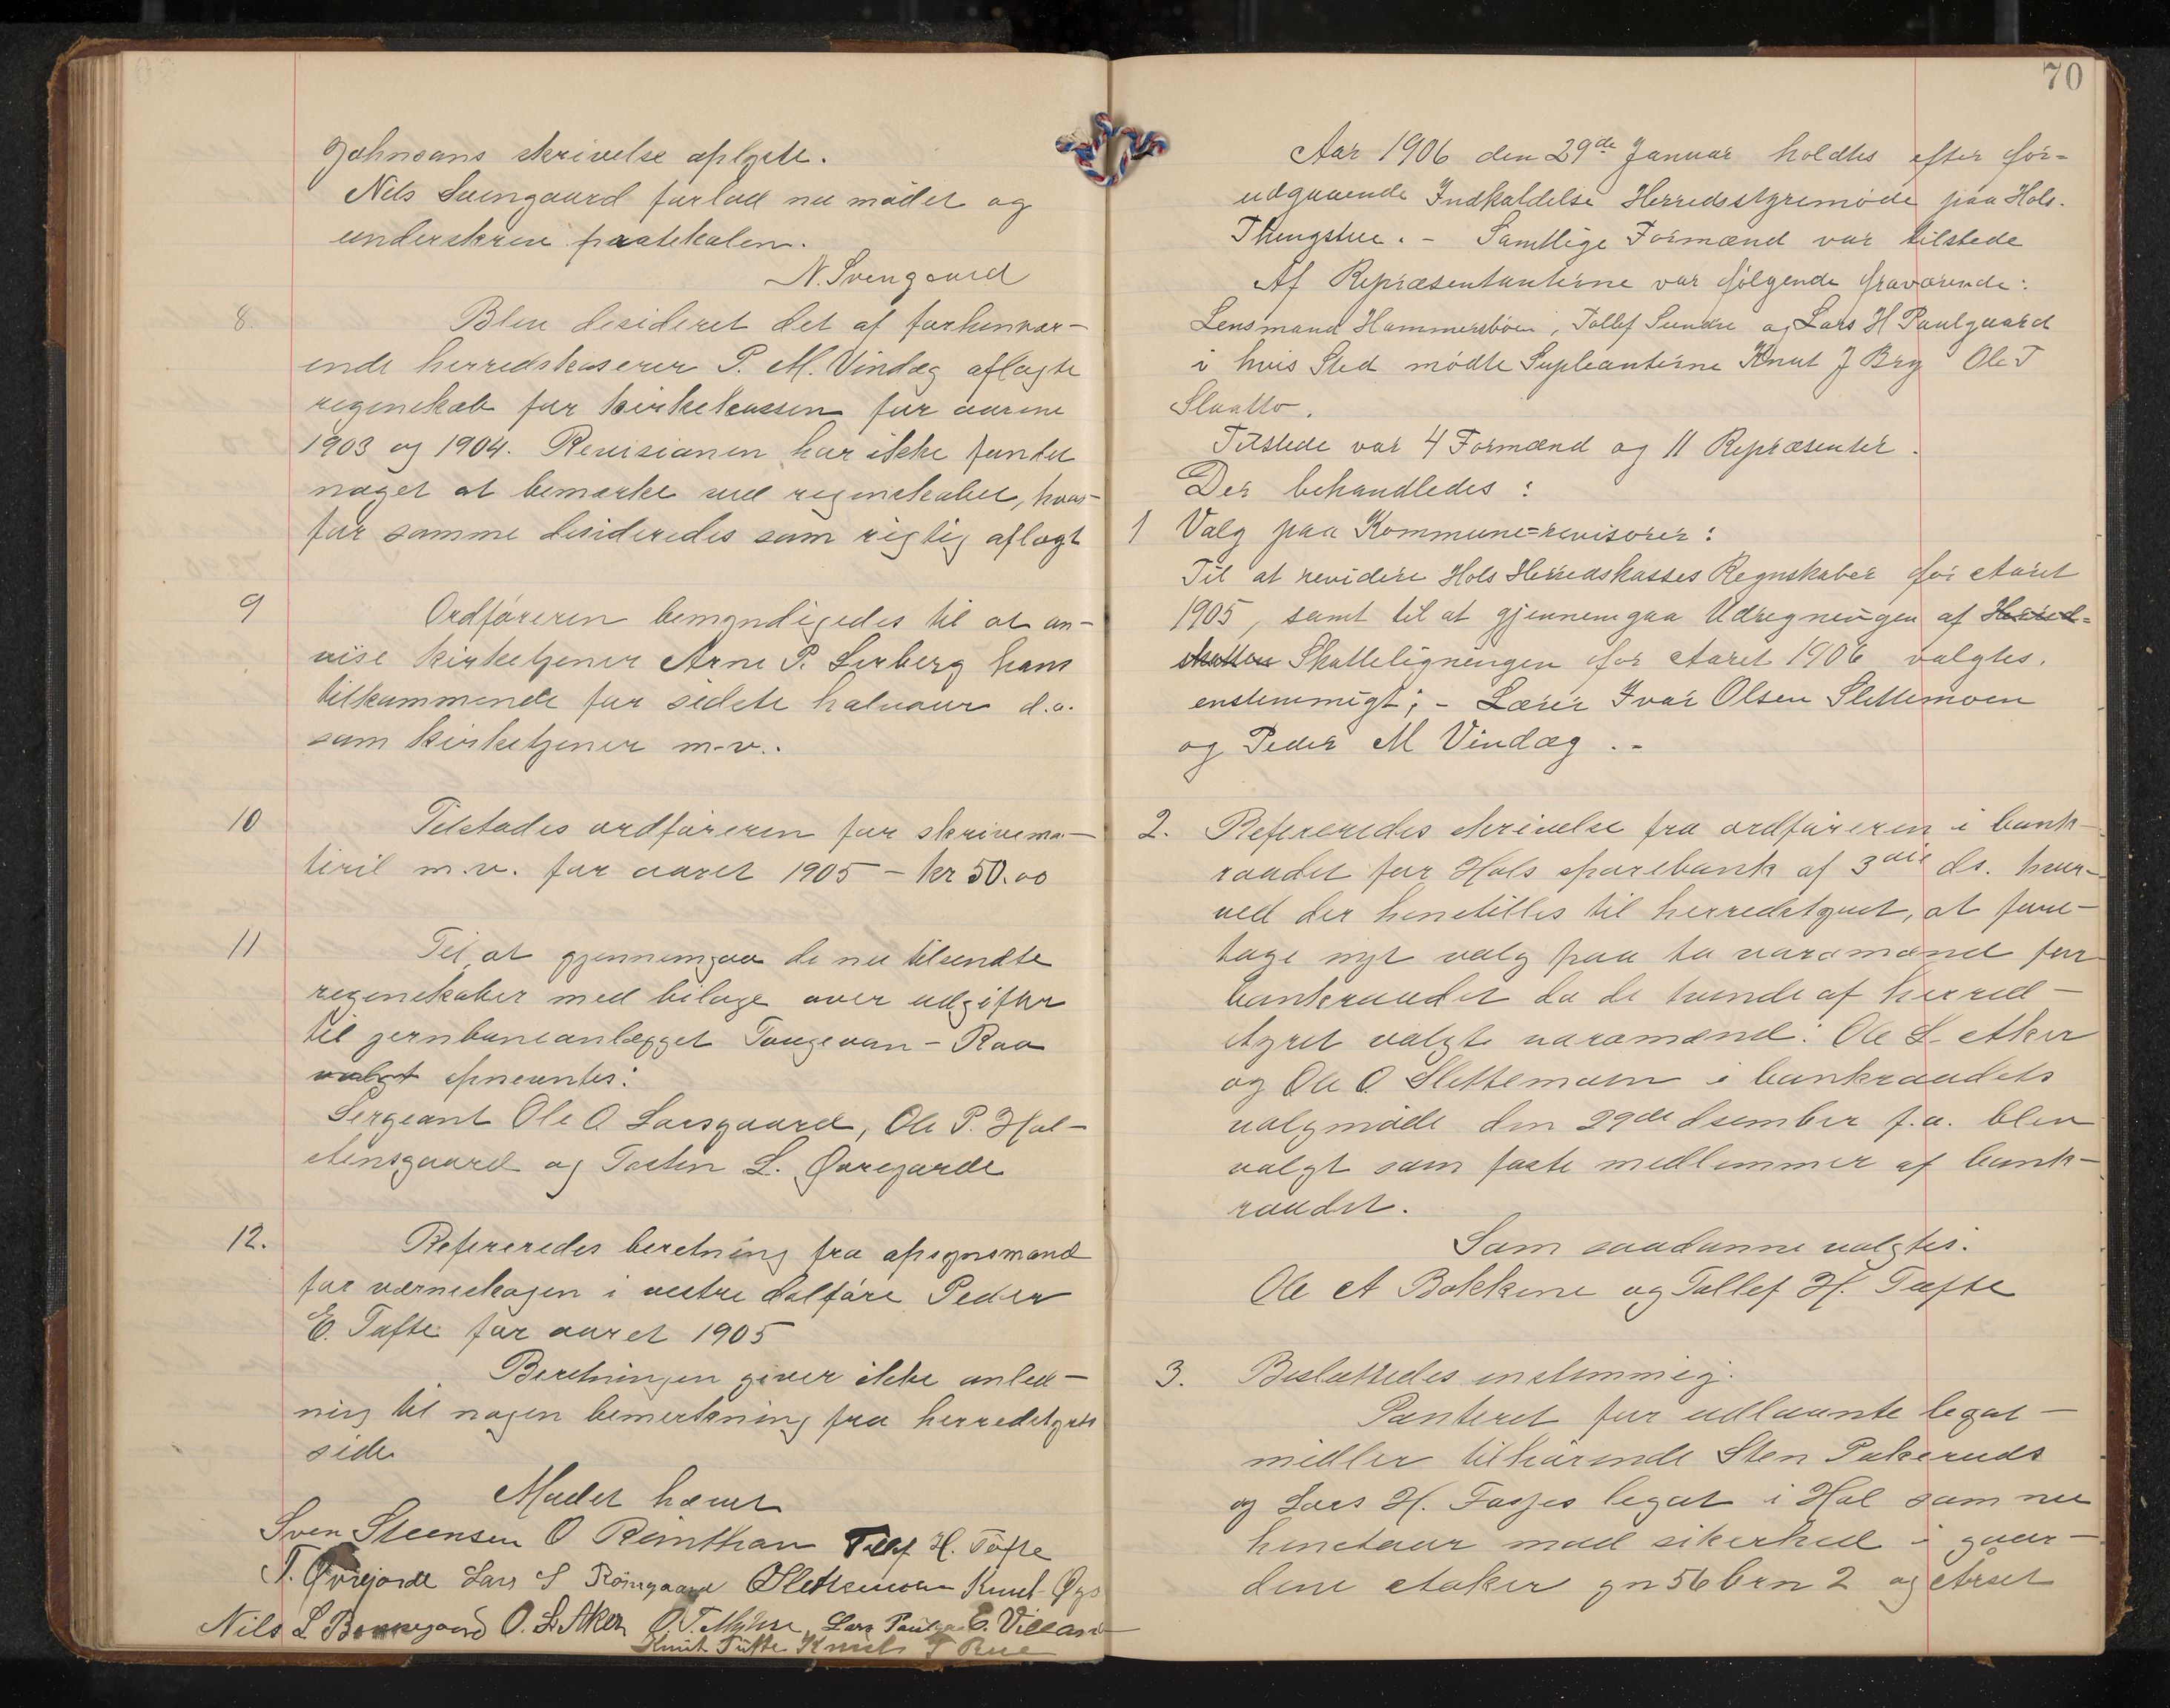 Johnsons skrivelse oplyst.
Nils Svengaard forlod nu mødet og
underskrev protokolen.
N. Svengaard
8. Blev desideret det af forhenvær-
ende herredskaserer P. M. Vindæg aflagte
regnskab for kirkekassen for aarene
1903 og 1904. Revisionen har ikke fundet
noget at bemærke ved regnskabet, hvor-
for samme desideredes som rigtig aflagt
9 Ordføreren bemyndigedes til at an-
vise kirketjener Arne P. Lerberg hans
tilkommende for sidste halvaar d.a.
som kirketjener m.v.
10 Tilstodes ordføreren for skrivema-
teriel m.v. for aaret 1905 – kr 50.00
11 Til at gjennemgaa de nu tilsendte
regnskaber med bilage over udgifter
til jernbaneanlægget Taugevan – Raa
valgt opnevntes:
Sergeant Ole O Larsgaard, Ole P. Hol-
stensgaard og Tosten L. Øvregarde
12. Refereredes beretning fra opsynsmand
for værneskogen i vestre dalføre Peder
E. Tufte for aaret 1905
Beretningen giver ikke anled-
ning til nogen bemerkning fra herredstyrets
side
Mødet hævet
Sven Steensen O Reinthon Tollef H. Tufte
T. Øvrejorde Lars S Røingaard O Slettemoen Knut Øyo
Nils L. O. L. Aker O. T. Lars Paulgaard E. Villand
Knut Tufte Knut T Rue
70
Aar 1906 den 29de Januar holdtes efter for-
udgaaende Indkaldelse Herredsstyremøde paa Hols.
Thingstue. – Samtlige Formænd var tilstede
Af Repræsentanterne var følgende fraværende:
Lensmand Hammersbøen, Tollef Sundre og Lars H Paulgaard
i hvis Sted mødte Supleanterne Knut J Bry Ole T
Slaatto.
Tilstede var 4 Formænd og 11 Repræsenter.
Der behandledes:
1 Valg paa Kommune=revisorer:
Til at revidere Hols Herredskasses Regnskaber for Aaret
1905, samt til at gjennemgaa Udregningen af Herred-
skatten Skatteligningen for Aaret 1906 valgtes.
enstemmigt; – Lærer Ivar Olsen Slettemoen
og Peder M Vindæg. –
2. Refereredes skrivelse fra ordføreren i bank-
raadet for Hols sparebank af 3die ds. hvor-
ved der henstilles til herredstyret, at fore-
tage nyt valg paa to varamænd for
bankraadet da de tvende af herred-
styret valgte varamænd: Ole L. Aker
og Ole O. Slettemoen i bankraadets
valgmøde den 29de dsember f.a. blev
valgt som faste medlemmer af bank-
raadet.
Som saadanne valgtes:
Ole A Bakkene og Tollef H. Tufte
3. Besluttedes enstemmig.
Panteret for udlaante legat-
midler tilhørende Sten Pukeruds
og Lars H. Fosjes legat i Hol som nu
henstaar mod sikerhed i gaar-
dene Aaker gn 56 brn 2 og Årset